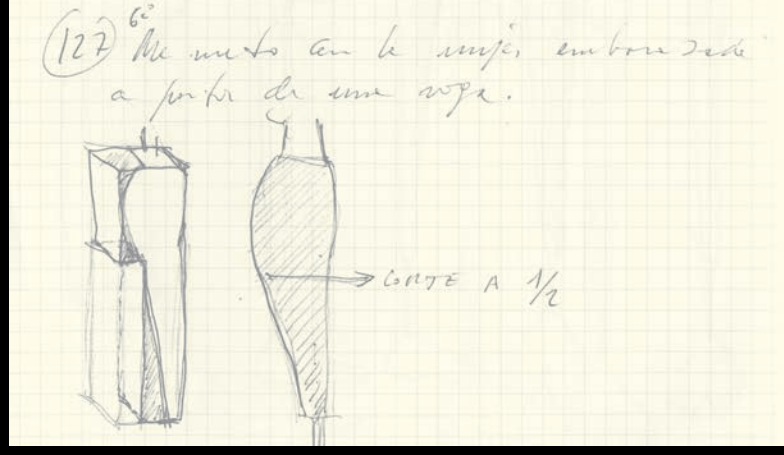 127 6º Me meto con la mujer embarazada
a partir de una viga.
CORTE A 1/2